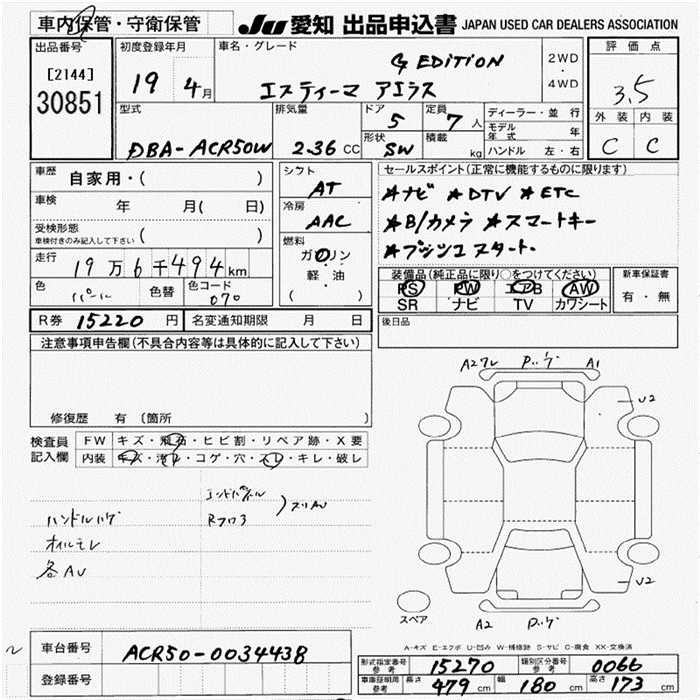 車内保管・守衛保管
JU 愛知 出品申込書 JAPAN USED CAR DEALERS ASSOCIATION
出品番号
[2144]
30851
初度登録年月
19 4月
車名・グレード
G EDITION
エスティーマ アエラス
2WD
・
4WD
評価点
3.5
外装 内装
C C
型式
DBA-ACR50W
排気量
2.36 CC
ドア
5
形状
SW
定員
7人
積載
kg
ディーラー・並行
モデル年式 年
ハンドル 左・右
車歴
自家用・( )
車検
年 月( 日)
受検形態
車検付きのみ記入して下さい ( )
走行
19万6千494km
色
パール
色替
色コード
070
シフト
AT
冷房
AAC
燃料
ガソリン
・
軽油
( )
セールスポイント(正常に機能するものに限ります)
★ナビ ★DTV ★ETC
★B/カメラ ★スマートキー
★プッシュスタート
装備品(純正品に限り○をつけてください)
PS PW エアB AW
SR ナビ TV カワシート
新車保証書
有・無
R券 15220円
名変通知期限 月 日
後日品
注意事項申告欄(不具合内容等は具体的に記入して下さい)
修復歴 有 〔箇所 〕
検査員
記入欄
FW キズ・飛石・ヒビ割・リペア跡・X要
内装 キズ・汚れ・コゲ・穴・スレ・キレ・破レ
エンドパネル
Rフロア
ハンドルハゲ
オイルモレ
各AU
A2 A1
U2
U2
スペア
A2
A-キズ E-エクボ U-凹み W-補修跡 S-サビ C-腐食 XX-交換済
車台番号 ACR50-0034438
登録番号
形式指定番号
参考
15270
類別区分番号
参考
0066
車庫証明用
参考
長さ 479cm 幅 180cm 高さ 173cm